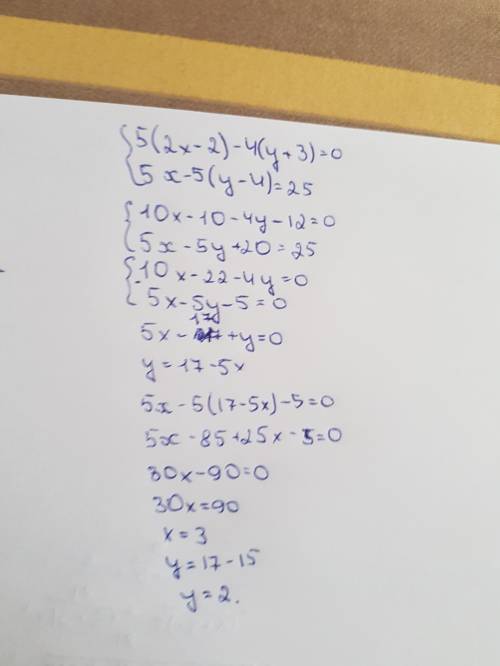 {5(2x-2)-4(y+3)=0
5x-5(y-4)=25
{10x-10-4y-12=0
5x-5y+20=25
{10x-22-4y=0
5x-5y-5=0
5x-17+y=0
y=17-5x
5x-5(17-5x)-5=0
5x-85+25x-5=0
30x-90=0
30x=90
x=3
y=17-15
y=2.